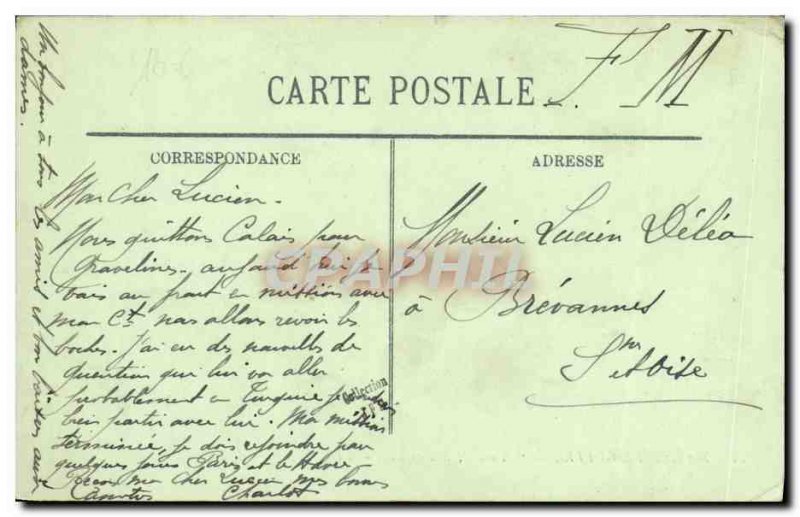 F. M
CARTE POSTALE
CORRESPONDANCE
ADRESSE
Mon Cher Lucien.
Nous quittons Calais pour
Gravelines. aujourd'hui je
vais au front en mission avec
mon Ct nous allons revoir les
boches. J'ai eu des nouvelles de
Quentin qui lui va aller
probablement en Turquie je
bien partir avec lui. Ma mission
terminée, je dois rejoindre par
quelques jours Paris et le Havre
Reçois mon Cher Lucien mes bonnes
Charlot
Un bonjour à tous les amis et bon baiser aux
dames.
Monsieur Lucien Déléa
à Brévannes
S. et Oise
CPAPHIL
Collection